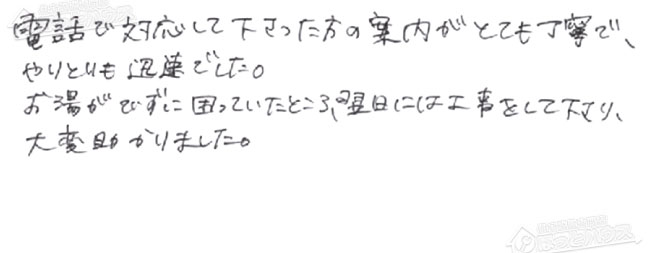 電話で対応して下さった方の案内がとても丁寧で、
やりとりも迅速でした。
お湯がでずに困っていたところ、翌日には工事をして下さり、
大変助かりました。